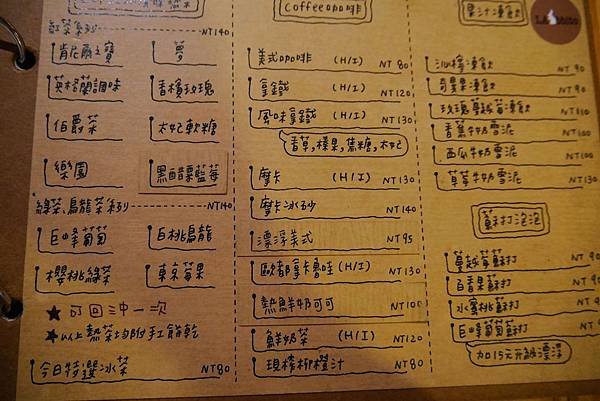 紅茶系列 NT140
肯尼爾之寶 夢
英格蘭調味 香檳玫瑰
伯爵茶 太妃軟糖
樂園 黑醋譚藍莓
綠茶、烏龍茶系列 NT140
巨峰葡萄 白桃烏龍
櫻桃綠茶 東京蘋果
★可回沖一次
★以上熱茶均附手工餅乾
今日特選冰茶 NT80
Coffee咖啡
美式咖啡 (H/I) NT 80
拿鐵 (H/I) NT120
風味拿鐵 (H/I) NT130
香草,榛果,焦糖,太妃
摩卡 (H/I) NT130
摩卡冰砂 NT140
漂浮美式 NT95
歐都拿卡魯哇(H/I) NT130
熱鮮奶可可 NT100
鮮奶茶 (H/I) NT120
現榨柳橙汁 NT80
果汁凍飲
沁檸凍飲 NT 90
奇異果凍飲 NT90
玫瑰蔓越莓凍飲 NT110
香蕉牛奶雪泥 NT100
西瓜牛奶雪泥 NT100
草莓牛奶雪泥 NT130
蘇打泡泡
蔓越莓蘇打 NT 90
百香果蘇打 NT 90
水蜜桃蘇打 NT 90
巨峰葡萄蘇打 NT 90
加15元升級漂浮